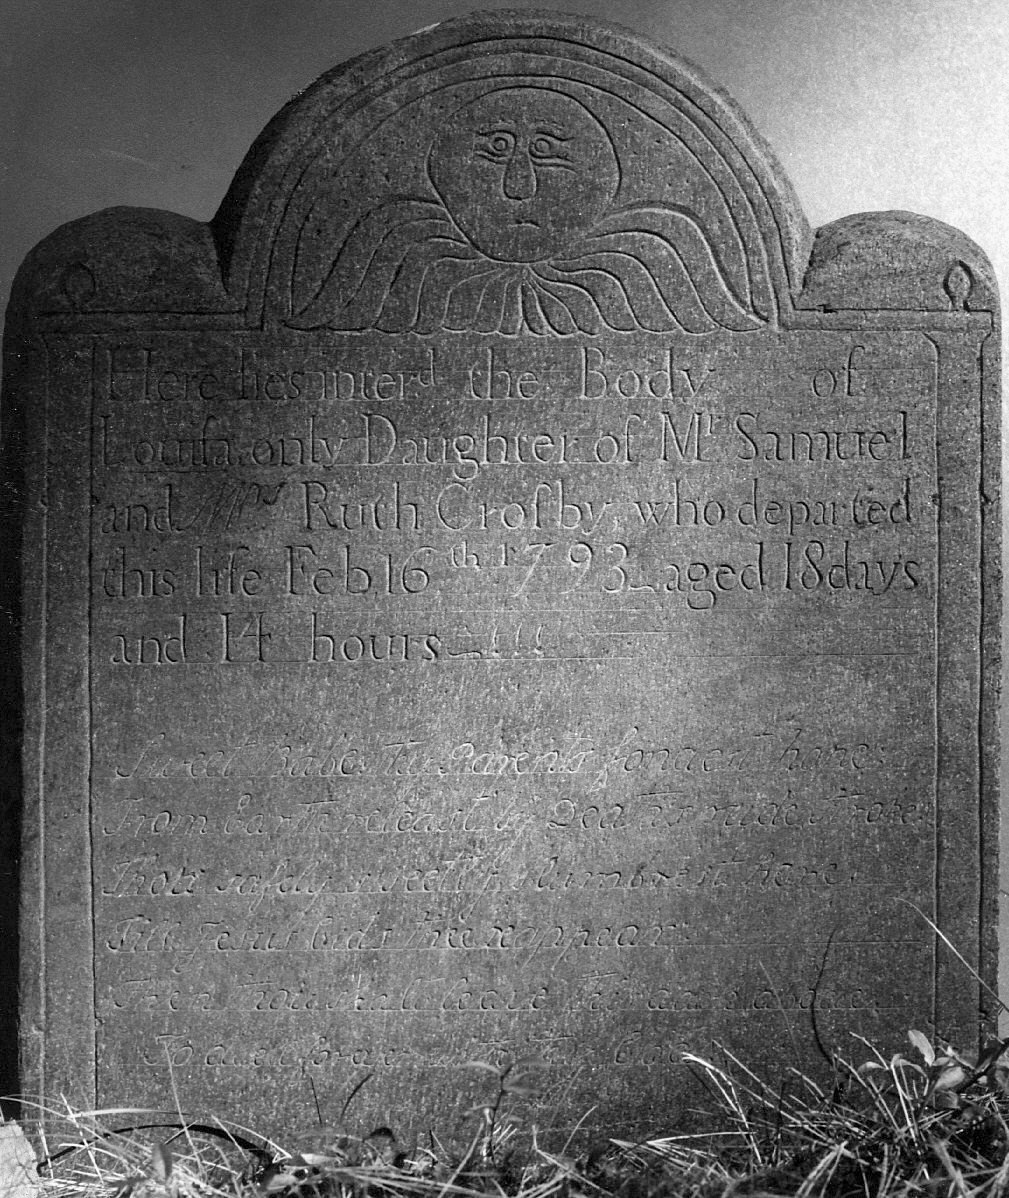 Here lies interᵈ the Body of
Louiſa only Daughter of Mʳ Samuel
and Mʳˢ Ruth Croſby, who departed
this life Feb, 16ᵗʰ 1793 aged 18 days
and 14 hours
Sweet Babes Thy Parents fondest hope
From Earth releast by Death's rude
Thou safely sweetly slumbrest here,
Till Jesus bids thee reappear
Then thou shalt leave
forever with thy God